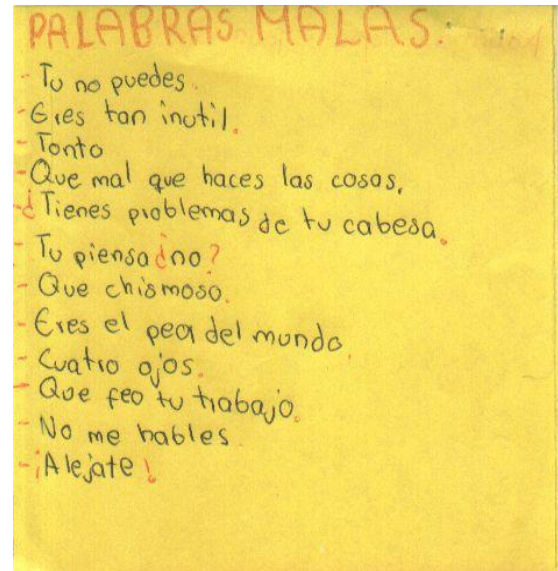 PALABRAS MALAS.
- Tu no puedes.
- Eres tan inutil.
- Tonto
- Que mal que haces las cosas.
- ¿Tienes problemas de tu cabesa.
- Tu piensa ¿no?
- Que chismoso.
- Eres el peor del mundo.
- Cuatro ojos.
- Que feo tu trabajo.
- No me hables
- ¡Alejate!